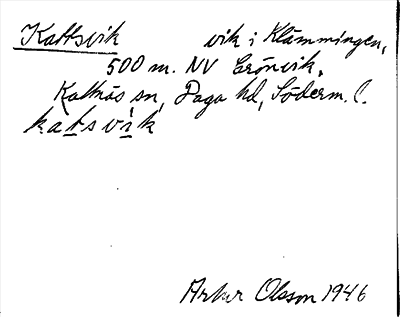 Kattsvik vik i Klämmingen,
500 m. NV Grönvik,
Kattnäs sn, Daga hd, Söderm. l.
katsvik
Artur Olsson 1946